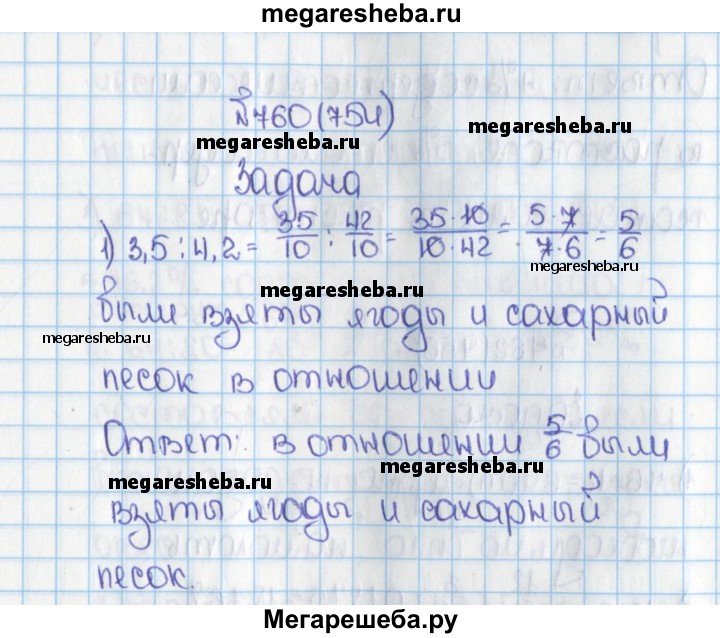 megaresheba.ru
№760(754)
megaresheba.ru
megaresheba.ru
Задача
1) 3,5 : 4,2 = 35/10 : 42/10 = 35·10/10·42 = 5·7/7·6 = 5/6
megaresheba.ru
megaresheba.ru
были взяты ягоды и сахарный
megaresheba.ru
песок в отношении
Ответ: в отношении 5/6 были
megaresheba.ru
megaresheba.ru
взяты ягоды и сахарный
песок.
Мегарешеба.ру